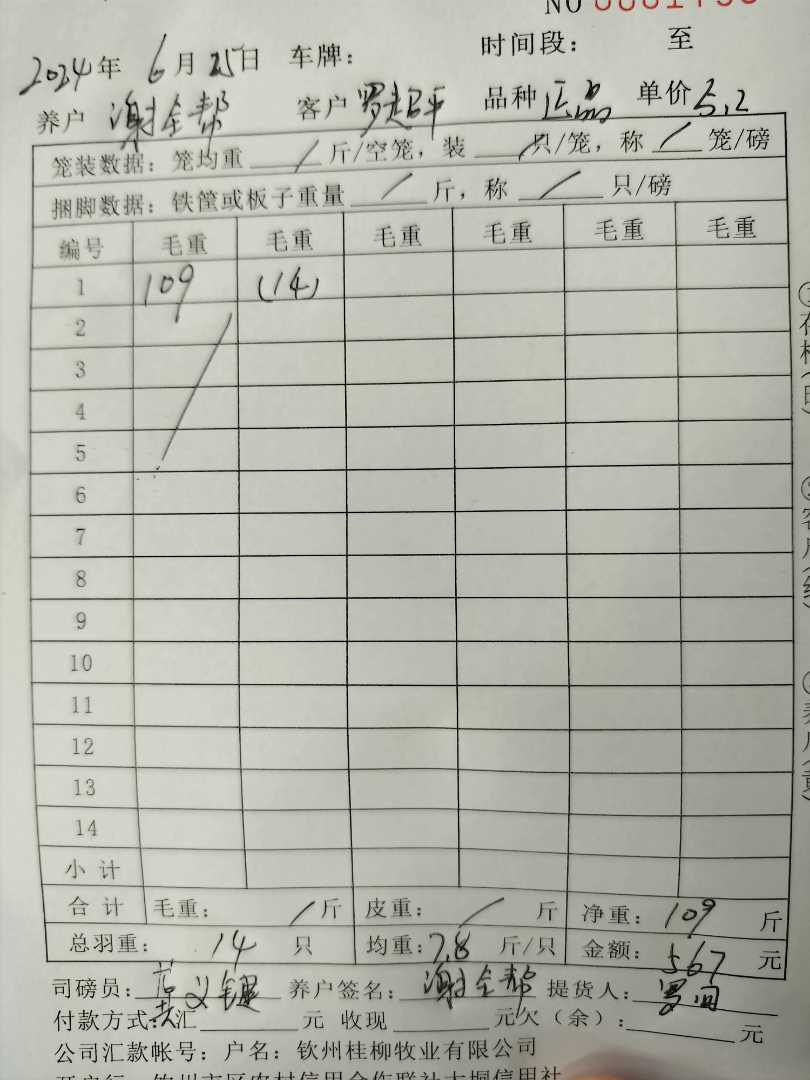 NO
2024年 6月 25日 车牌： 时间段： 至
养户 谢全帮 客户 罗超平 品种 正品 单价 5.2
笼装数据：笼均重 / 斤/空笼，装 / 只/笼，称 / 笼/磅
捆脚数据：铁筐或板子重量 / 斤，称 / 只/磅
编号 毛重 毛重 毛重 毛重 毛重 毛重
1 109 (14)
2
3
4
5
6
7
8
9
10
11
12
13
14
小计
合计 毛重： / 斤 皮重： / 斤 净重：109 斤
总羽重： 14 只 均重：7.8 斤/只 金额：567 元
司磅员： 养户签名：谢全帮 提货人：罗
付款方式：汇 元 收现 元欠（余）： 元
公司汇款帐号：户名：钦州桂柳牧业有限公司